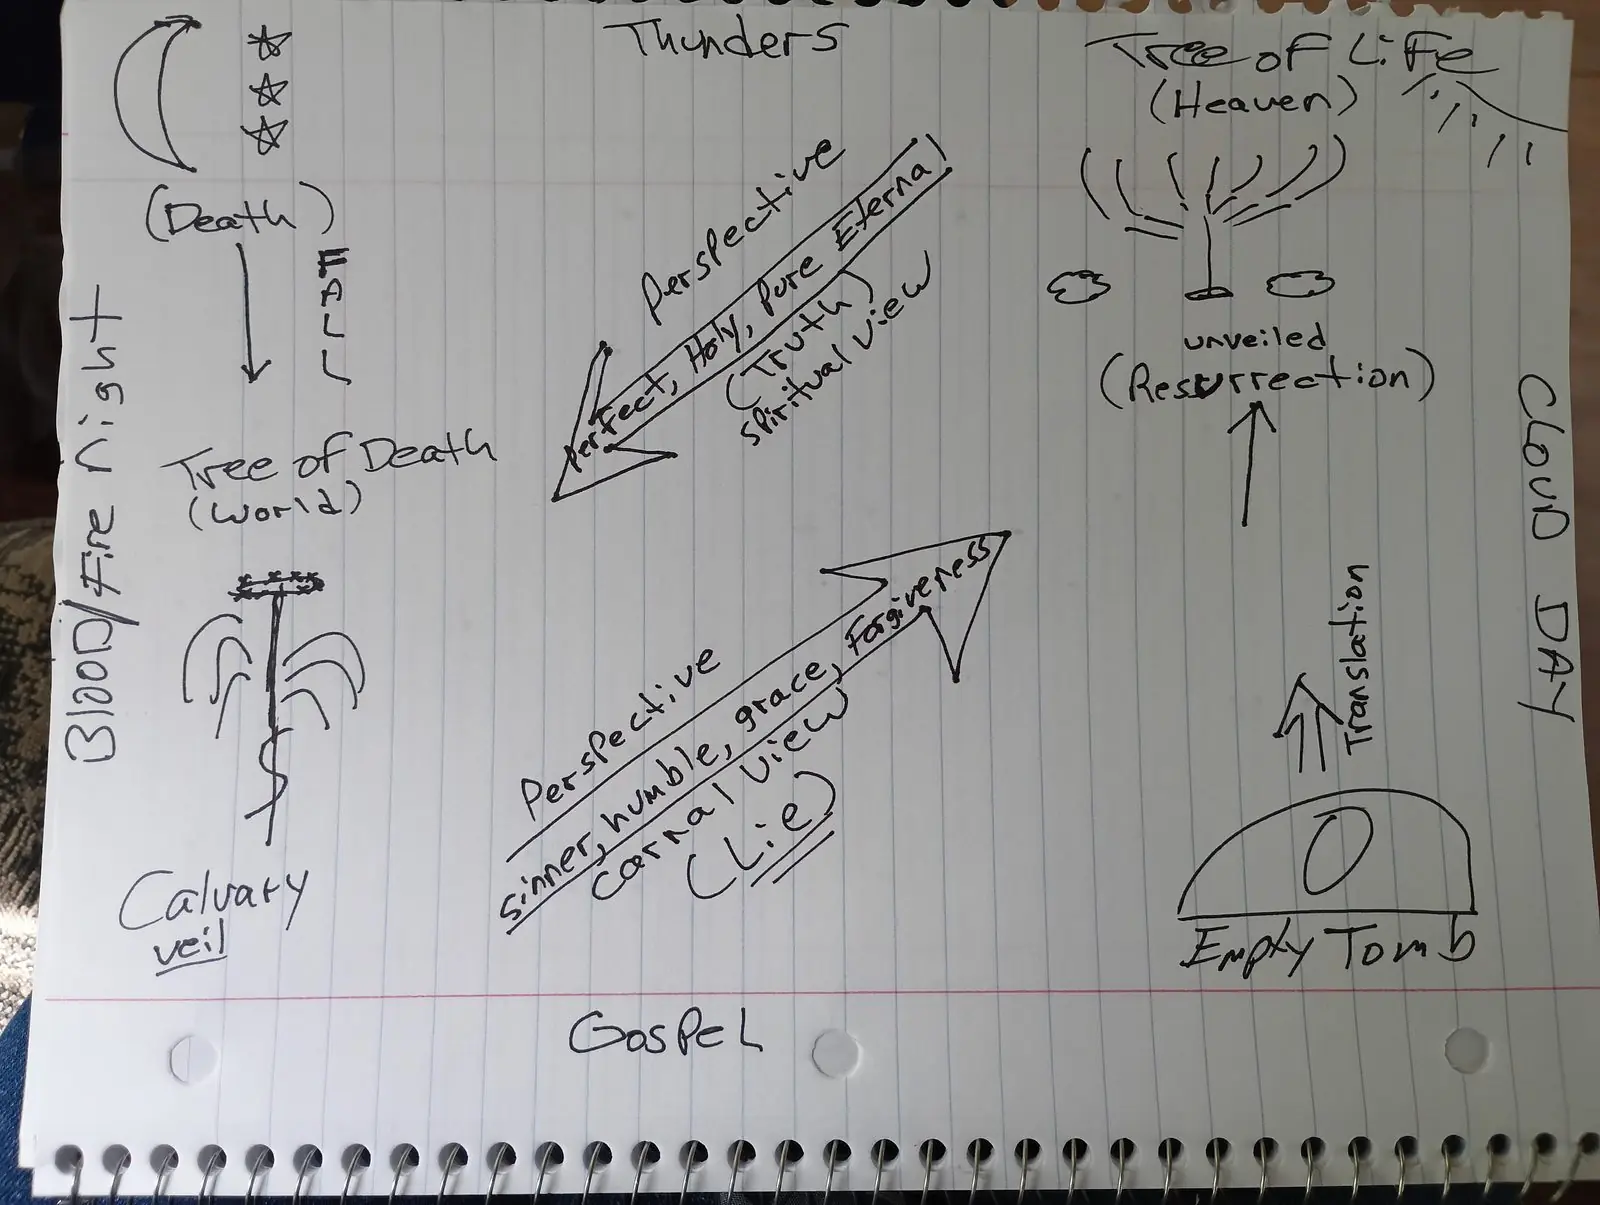 Thunders
Tree of Life
(Heaven)
(Death)
Fall
Blood/Fire Night
Tree of Death
(World)
Calvary
veil
Perspective
Perfect, Holy, Pure Eternal
(Truth)
spiritual view
Perspective
sinner, humble, grace, Forgiveness
carnal view
(Lie)
unveiled
(Resurrection)
Translation
Empty Tomb
CLOUD DAY
GosPeL